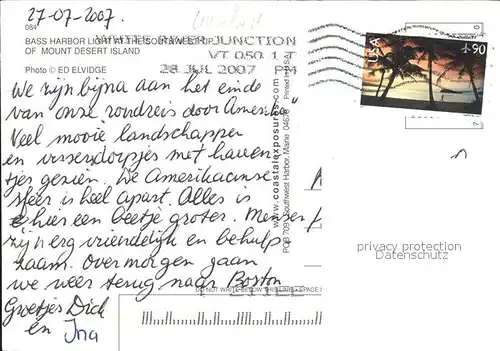 27-07-2007.
084
BASS HARBOR LIGHT AT THE SOUTHWEST TIP
OF MOUNT DESERT ISLAND
Photo © ED ELVIDGE
WHITE RIVER JUNCTION
VT 050 1 T
28 JUL 2007 PM
USA
90
We zijn bijna aan het einde
van onze rondreis door Amerika
Veel mooie landschappen
en vissersdorpjes met haven
tjes gezien. De Amerikaanse
sfeer is heel apart. Alles is
hier een beetje groter. Mensen
zijn erg vriendelijk en behulp
zaam. Overmorgen gaan
we weer terug naar Boston
Groetjes Dick
en Ina
www.coastalexposures.com
POB 709 Southwest Harbor, Maine 04679 Printed in U.S.A.
DO NOT WRITE BELOW THIS LINE - SPACE
privacy protection
Datenschutz